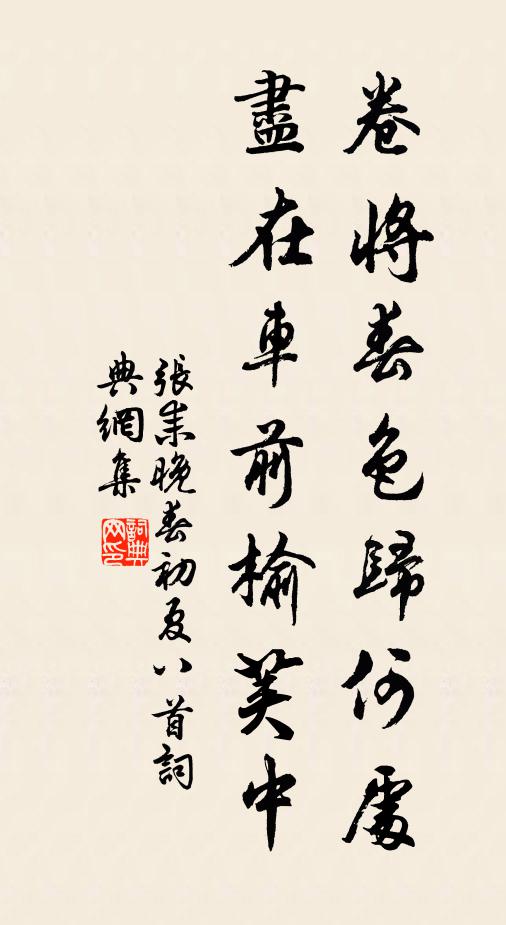 卷將春色歸何處
盡在車前榆莢中
張耒晚春初夏八首詞
典網集
詞典
网印